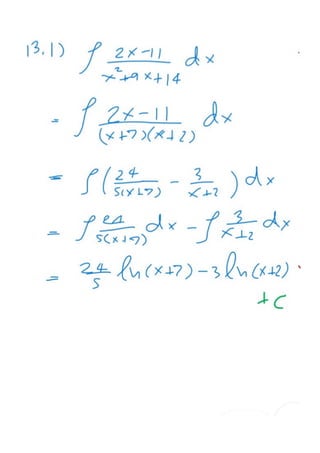 13.1) ∫ (2x-11)/(x²+9x+14) dx
= ∫ (2x-11)/((x+7)(x+2)) dx
= ∫ (24/(5(x+7)) - 3/(x+2)) dx
= ∫ 24/(5(x+7)) dx - ∫ 3/(x+2) dx
= 24/5 ln(x+7) - 3 ln(x+2)
+ C